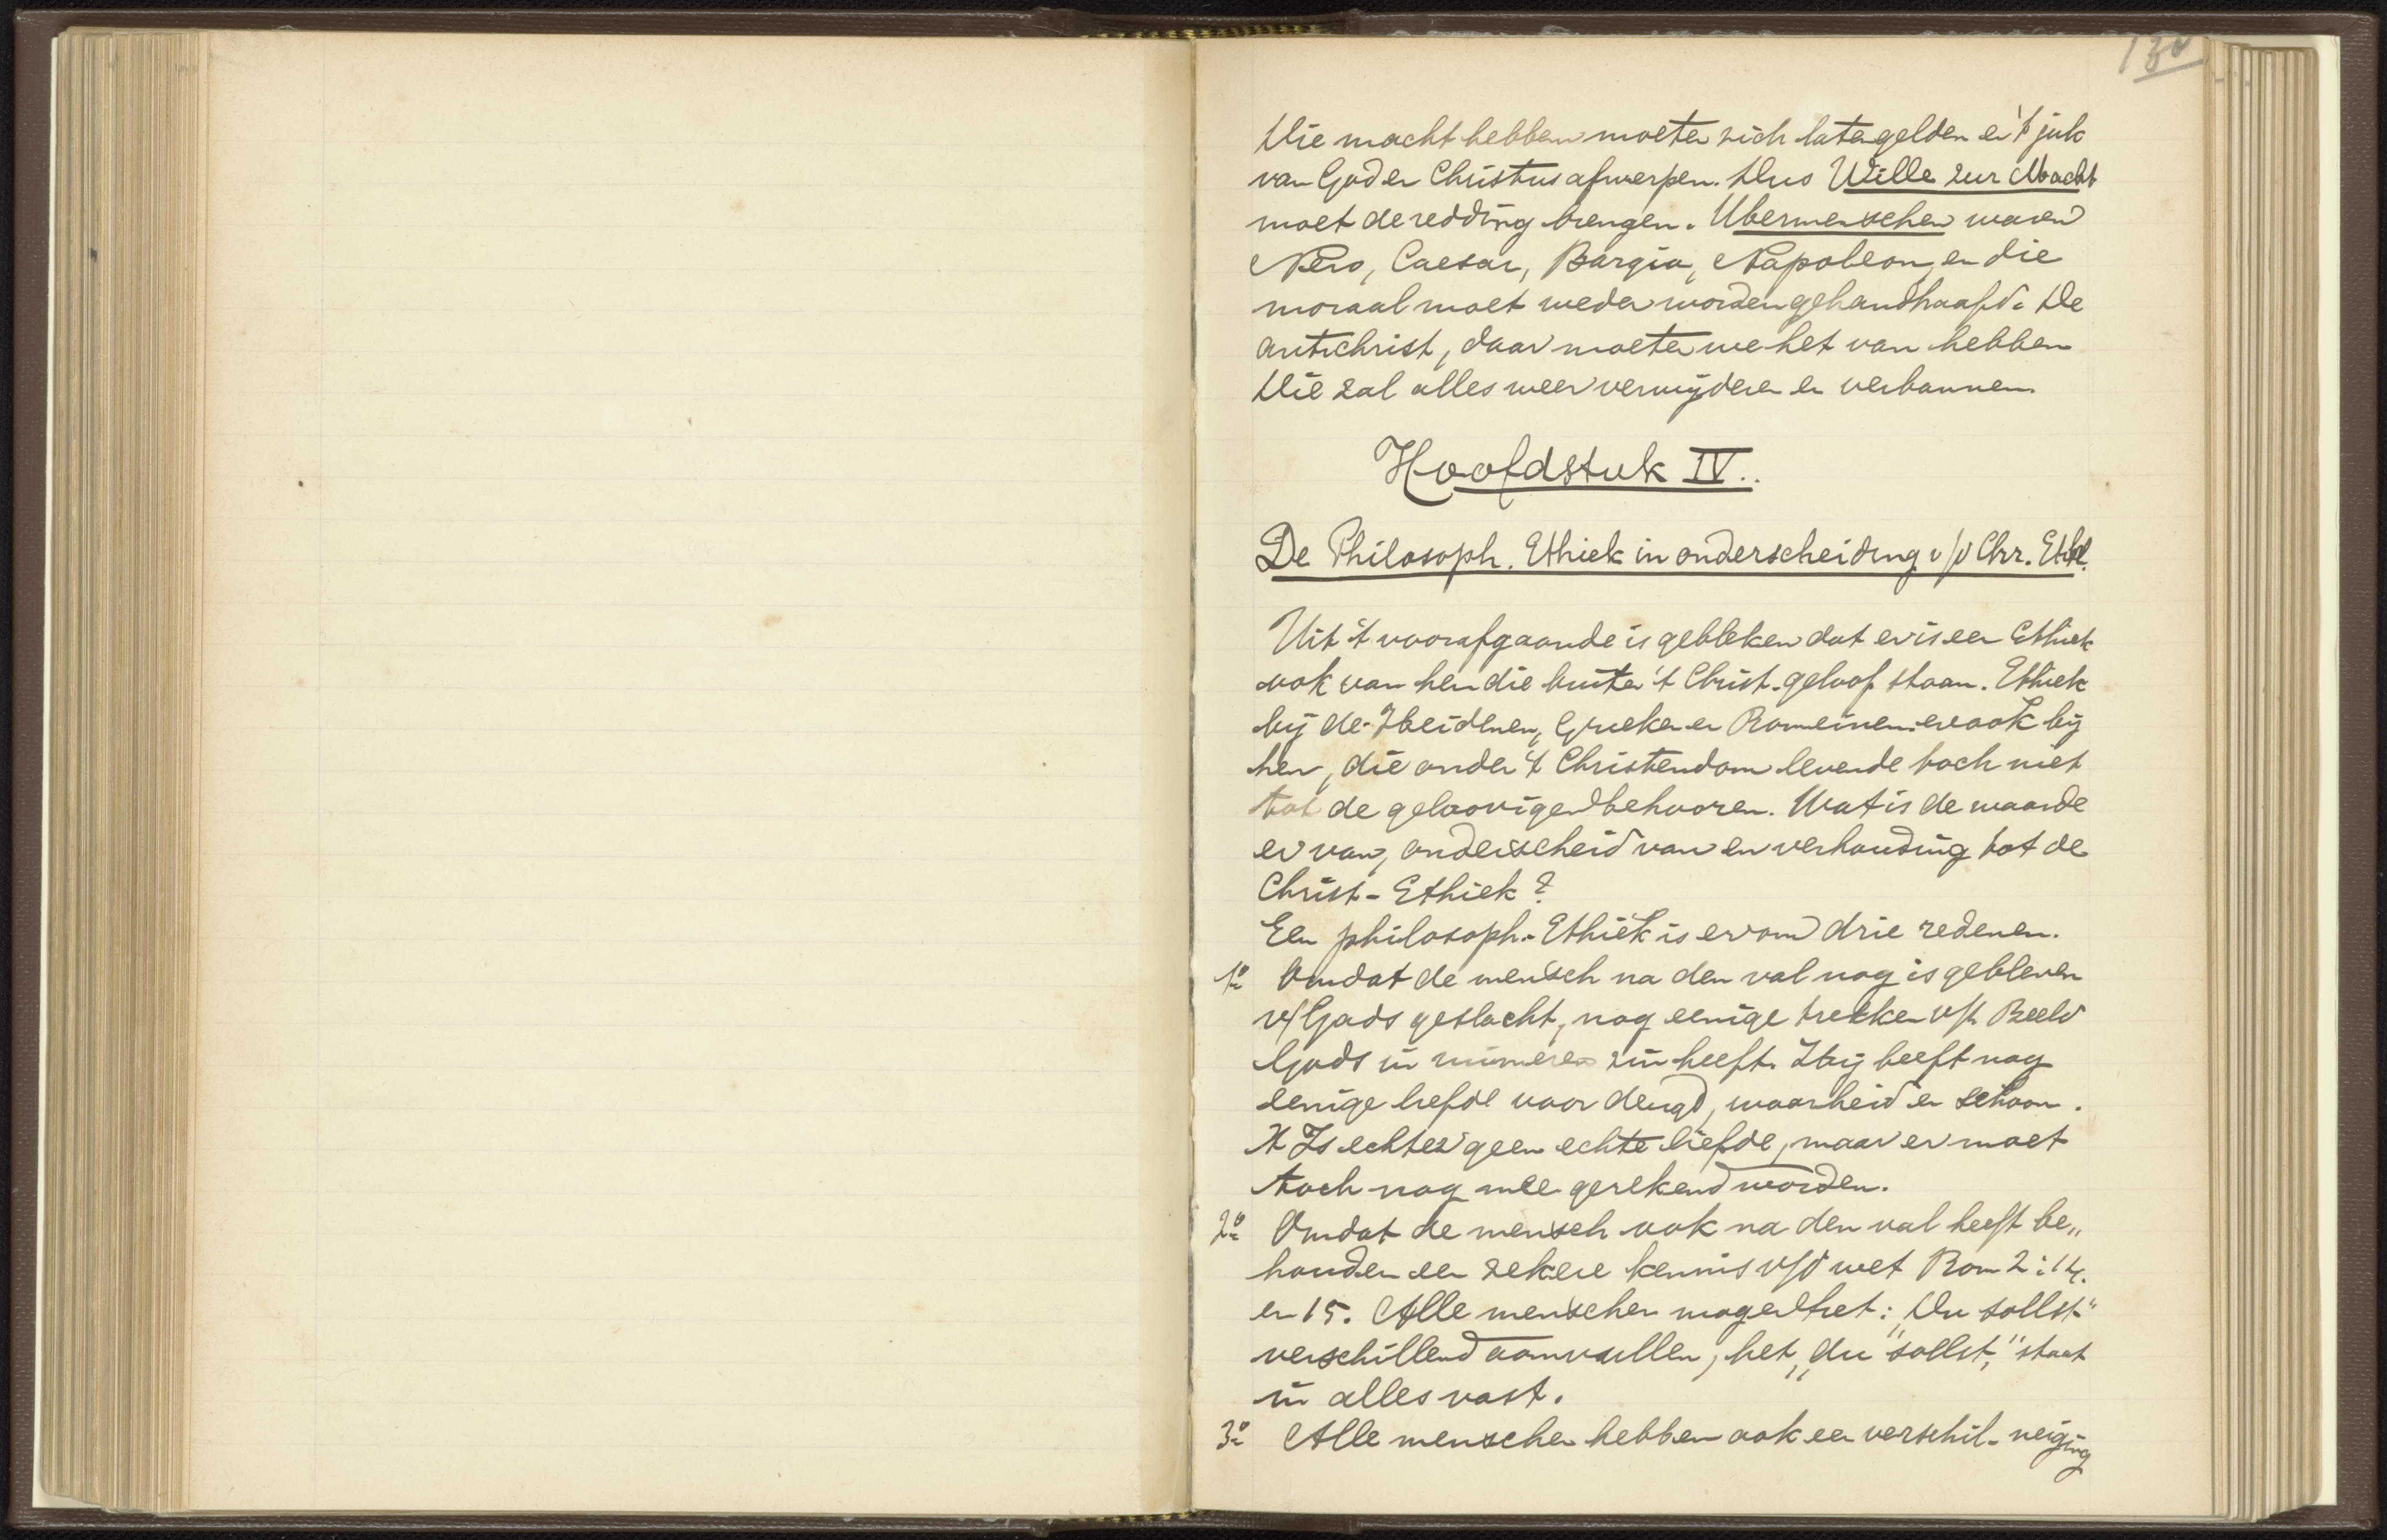 130
Die macht hebben moeten zich laten gelden en 't juk
van God en Christus afwerpen. Dus Wille zur Macht
moet de redding brengen. Ubermenschen waren
Nero, Caesar, Borgia, Napoleon, en die
moraal moet weder worden gehandhaafd. De
antichrist, daar moeten we het van hebben
Die zal alles weer verwijderen en verbannen.
Hoofdstuk IV..
De Philosoph. Ethiek in onderscheiding v/d Chr. Eth.
Uit 't voorafgaande is gebleken dat er is een Ethiek
ook van hen die buiten 't Christ. geloof staan. Ethiek
bij de Heidenen, Grieken en Romeinen. en ook bij
hen, die onder 't Christendom levende toch niet
tot de geloovigen behooren. Wat is de waarde
er van, onderscheid van en verhouding tot de
Christ- Ethiek?
Een philosoph. Ethiek is er om drie redenen.
1o Omdat de mensch na den val nog is gebleven
v/ Gods geslacht, nog eenige trekken v/h Beeld
Gods in ruimeren zin heeft. Hij heeft nog
eenige liefde voor deugd, waarheid en schoon.
't Is echter geen echte liefde, maar er moet
toch nog mee gerekend worden.
2o Omdat de mensch ook na den val heeft be„
houden een zekere kennis v/d wet Rom 2:14.
en 15. Alle menschen mogen het: „Du sollst"
verschillend aanvullen, het „du sollst," staat
in alles vast.
3o Alle menschen hebben ook een verschil. neiging